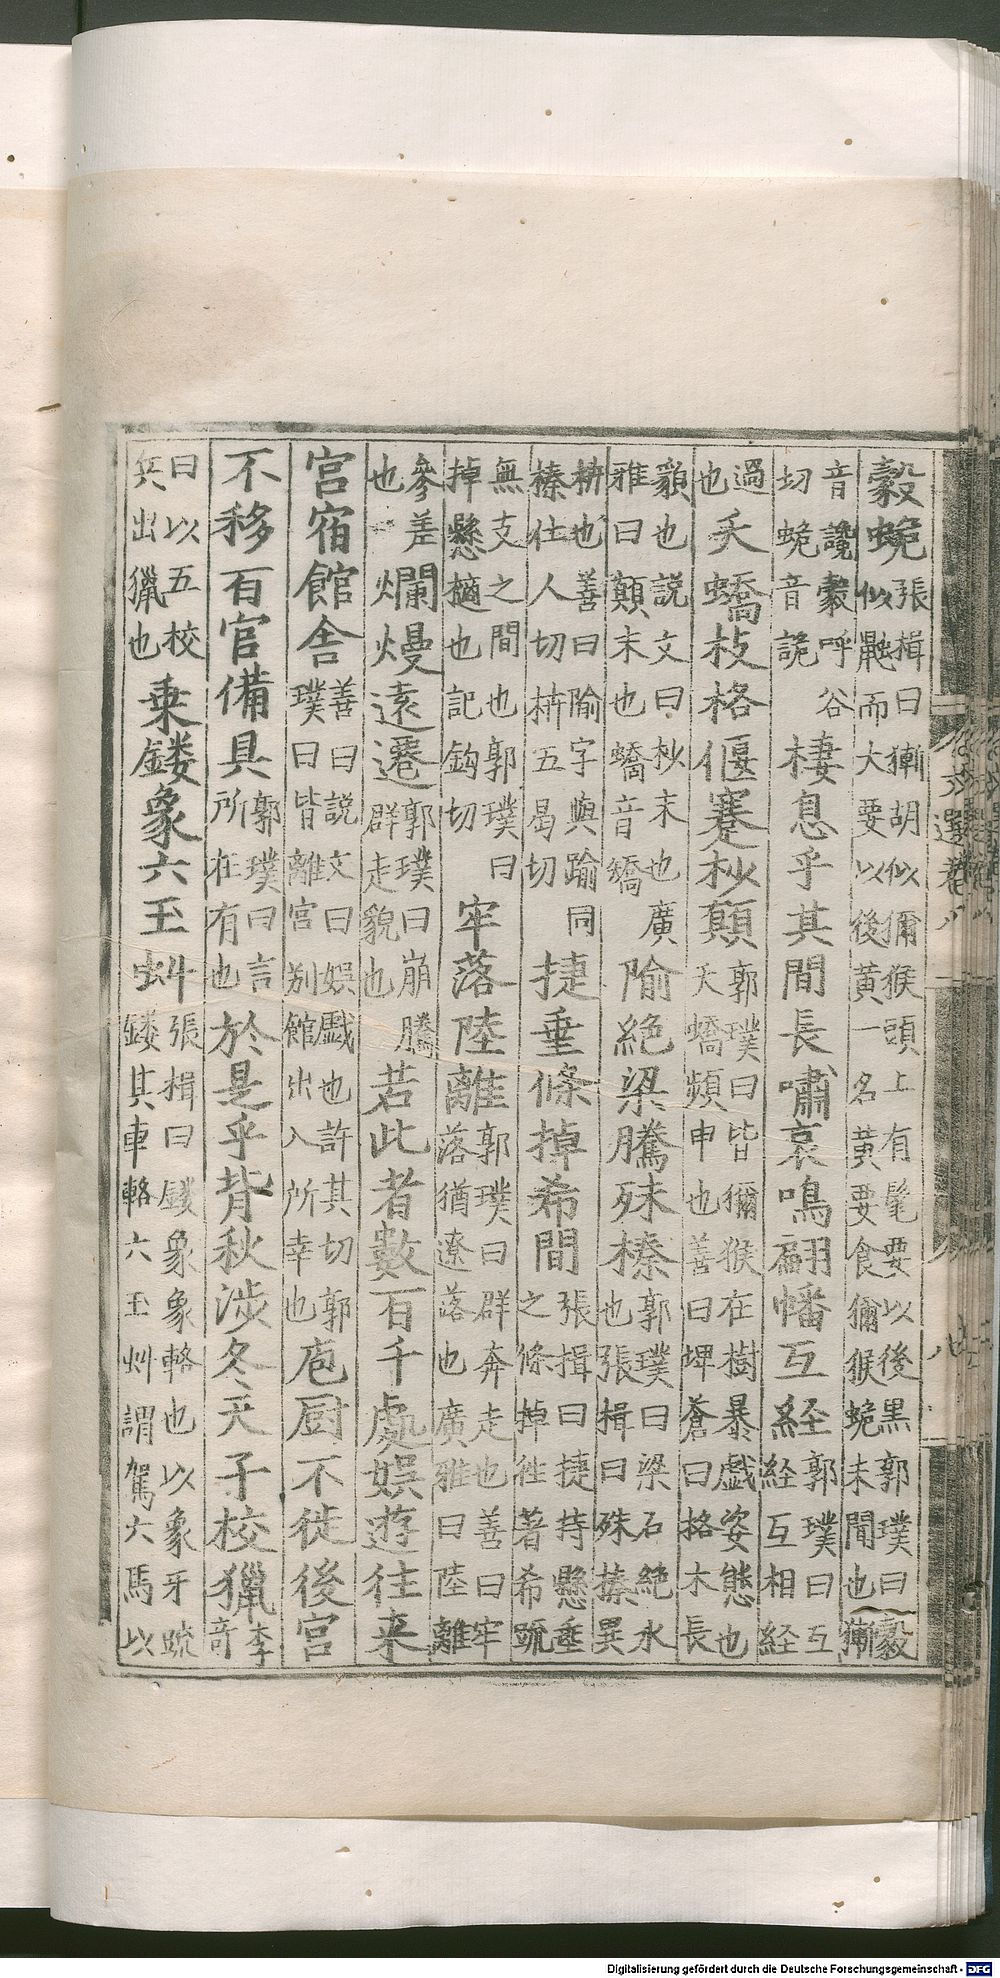 豰蛫張揖曰獑胡似獼猴頭上有髦要以後黑郭璞曰豰似鼬而大要以後黃一名黃要食獼猴蛫未聞也獑
音讒豰呼谷切蛫音詭棲息乎其間長嘯哀鳴翩幡互経郭璞曰互経互相経
過也夭蟜枝格偃蹇杪顛郭璞曰皆獼猴在樹暴戲姿態也夭蟜頻申也善曰埤蒼曰格木長
貌也說文曰杪末也廣雅曰顛末也蟜音矯隃絶梁騰殊榛郭璞曰梁石絶水也張揖曰殊榛異
枿也善曰隃字與踰同榛仕人切枿五曷切捷垂條掉希間張揖曰捷持懸垂之條掉往著希疏
無支之間也郭璞曰掉懸擿也記鈎切牢落陸離郭璞曰群奔走也善曰牢落猶遼落也廣雅曰陸離
參差也爛熳遠遷郭璞曰崩騰群走貌也若此者數百千處娛遊往来
宮宿館舍善曰說文曰娛戲也許其切郭璞曰皆離宮别館出入所幸也庖厨不徙後宮
不移百官備具郭璞曰言所在有也於是乎背秋涉冬天子校獵李竒
曰以五校兵出獵也乗鏤象六玉虯張揖曰鏤象象輅也以象牙疏鏤其車輅六玉虯謂駕六馬以
文選卷八
Digitalisierung gefördert durch die Deutsche Forschungsgemeinschaft - DFG